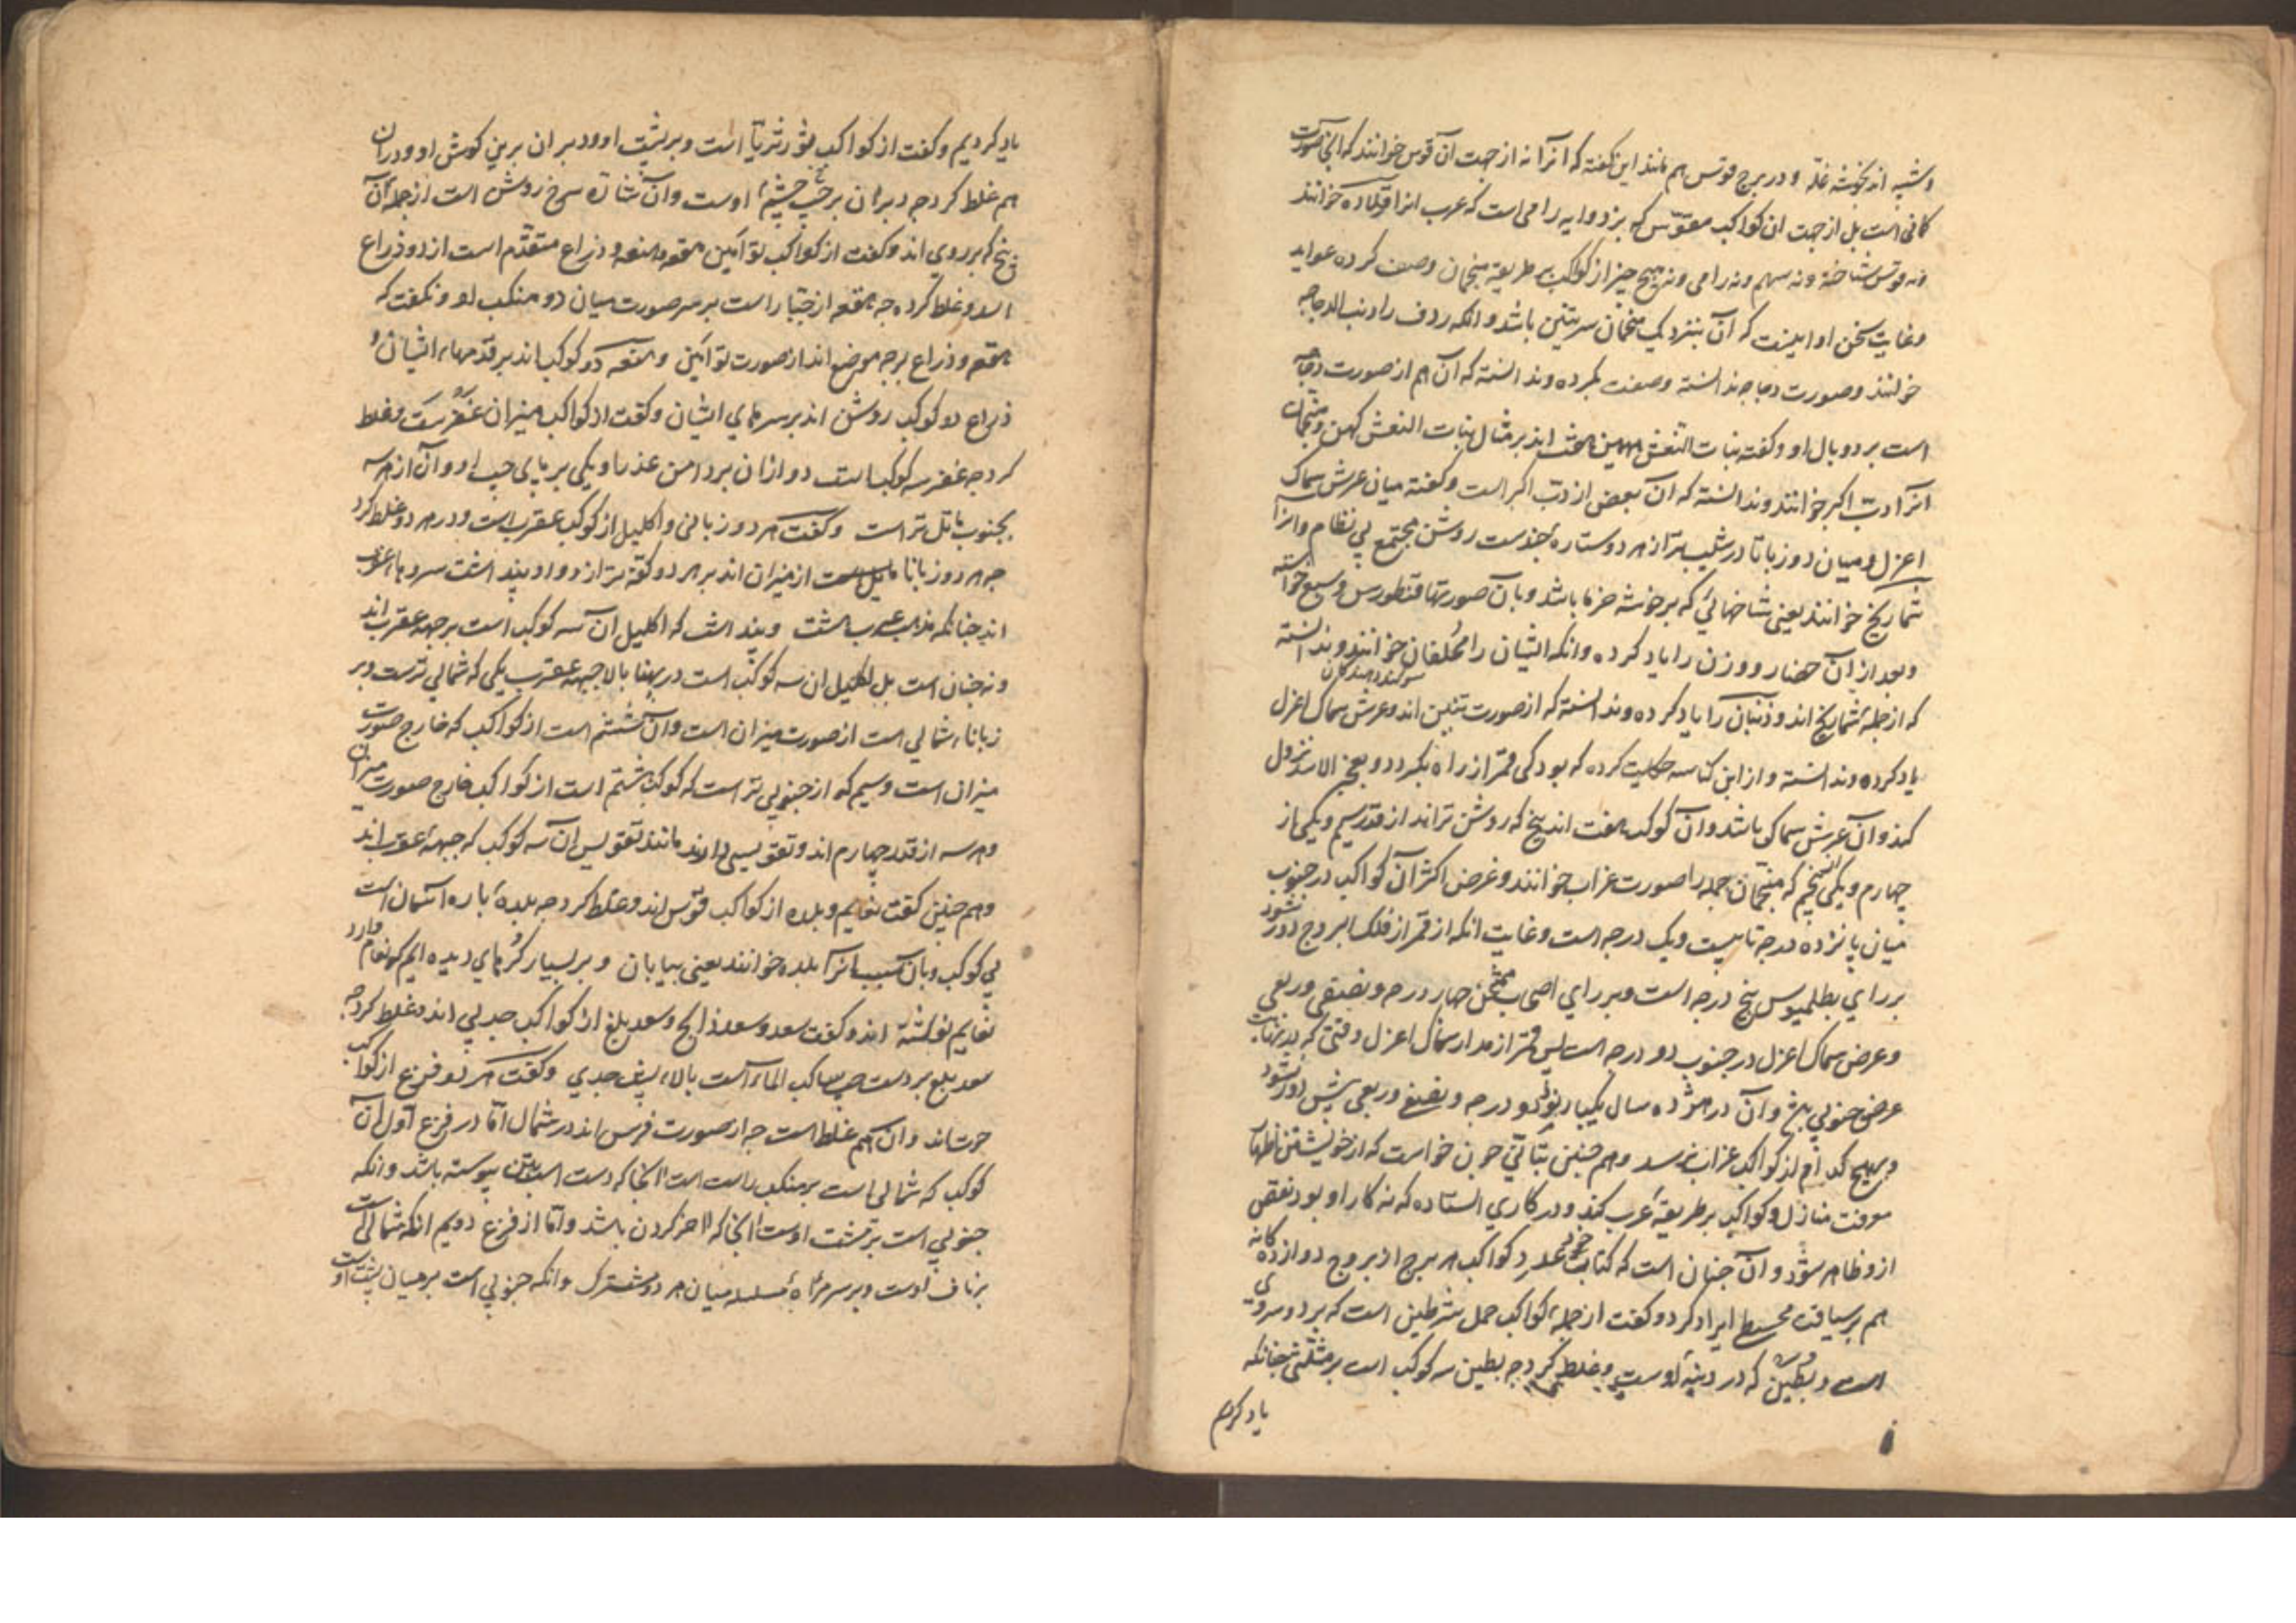 و شبیه اند بخوشه غله و در برج قوس هم مانند این گفته که آنرا نه از جهت آن قوس خوانند که آنجا صورت
کمانی است بل از جهت ان کواکب مقوس که بر ذوابه رامی است که عرب انرا قلاده خوانند
و نه قوس شناخته و نه سهم و نه رامی و نه هیچ چیز از کواکب بر طریقه منجمان وصف کرده عواید
و غایت سخن او اینست که آن بنزدیک منجمان سر تنین باشد و انکه ردف را ذنب الدجاجه
خوانند و صورت دجاجه ندانسته و صفت نکرده و ندانسته که آن هم از صورت دجاجه
است بر دو بال او و گفته بنات النعش اند بر مثال بنات النعش کهین و منجمان
آنرا دب اکبر خوانند و ندانسته که آن بعض از دب اکبر است و گفته میان عرش سماک
اعزل و میان دو زبانا در شیب تر از هر دو ستاره چندست روشن مجتمع بی نظام و انرا
شماریخ خوانند یعنی شاخهائی که بر خوشه خرما باشد و بآن صورتها قنطورس و سبع خواسته
و بعد از آن حضار و وزن را یاد کرده و انکه ایشان را محلفان خوانند و ندانسته
سوگند دهندگان
که از جمله شماریخ اند و ذئبان را یاد کرده و ندانسته که از صورت تنین اند و عرش سماک اعزل
یاد کرده و ندانسته و از ابن کناسه حکایت کرده که بود کی قمر از راه بگردد و بعجز الاسد نزول
کند و آن عرش سماک باشد و آن کواکب هفت اند پنج که روشن تر اند از قدر سیم و یکی از
چهارم و یکی از پنجم که منجمان جمله را صورت غراب خوانند و عرض اکثر آن کواکب در جنوب
میان پانزده درجه تا بیست و یک درجه است و غایت انکه از قمر از فلک البروج دور شود
بر رای بطلمیوس پنج درجه است و بر رای اصحاب ممتحن چهار درجه و نصفی و ربعی
و عرض سماک اعزل در جنوب دو درجه است پس قمر از مدار سماک اعزل وقتی که بنهایت
عرض جنوبی بود و آن در هژده سال یکبار بود دو درجه و نصف و ربعی بیش دور نشود
و بهیچ کدام از کواکب غراب نرسد و هم چنین بتانی چون خواست که از خویشتن اظهار
معرفت منازل و کواکب بر طریقه عرب کند و در کاری ایستاده که نه کار او بود نقص
ازو ظاهر شود و آن چنان است که کتاب خود عدد کواکب هر برج از بروج دوازده گانه
هم بر سیاقت مجسطی ایراد کرد و گفت از جمله کواکب حمل شرطین است که بر دو سروی
است و بطین که در دنبه اوست و غلط کرد چه بطین سه کوکب است بر مثلثی چنانکه
یاد کردیم
یاد کردیم و گفت از کواکب ثور ثریا است و بر پشت او و دبران برین گوش او و در ان
هم غلط کرد چه دبران بر چشم اوست و آن ستاره سرخ روشن است از جمله آن
پنج که بر روی اند و گفت از کواکب توأمین هقعه و هنعه و ذراع متقدم است از دو ذراع
اسد و غلط کرده چه هقعه از جبار است بر سر صورت میان دو منکب او و نگفت که
هقعه و ذراع بر چه موضع اند از صورت توأمین و هنعه دو کوکب اند بر قدمهاء ایشان و
ذراع دو کوکب روشن اند بر سرهای ایشان و گفت از کواکب میزان غفر ست و غلط
کرد چه غفر سه کوکب است دو از ان بر دامن عذرا و یکی بر پای چپ او و آن از هر سه
بجنوب مایل تر است و گفت هر دو زبانی و اکلیل از کواکب عقرب است و در هر دو غلط کرد
چه هر دو زبانا از میزان اند بر هر دو کفه ترازو و او پنداشت سروهاء عقرب
اند چنانکه مذهب عرب است و پنداشت که اکلیل ان سه کوکب است بر جبهه عقرب اند
و نه چنان است بل اکلیل ان سه کوکب است در پهنا بالاء جبهه عقرب یکی که شمالی ترست و بر
زبانا شمالی است از صورت میزان است و آن ششم است از کواکب که خارج صورت
میزان است و سیم که از جنوبی تر است که کوکب ششم است از کواکب خارج صورت میزان
و هر سه از قدر چهارم اند و تقویسی دارند مانند تقویس ان سه کوکب که جبهه عقرب اند
و هم چنین گفت نعایم و بلده از کواکب قوس اند و غلط کرد چه بلده پاره آسمان است
بی کوکب و بان سبب انرا بلده خوانند یعنی بیابان و بر بسیار کرهای دیده ایم که نعام وارد
نعایم نوشته اند و گفت سعود و سعد ذابح و سعد بلع از کواکب جدی اند و غلط کرد چه
سعد بلع بر دست چپ ساکب الماء است بالاء پشت جدی و گفت هر دو فرغ از کواکب
حوت اند و آن هم غلط است چه از صورت فرس اند در شمال اما در فرغ اول آن
کوکب که شمالی است بر منکب راست است آنجا که دست است بتن پیوسته باشد و انکه
جنوبی است بر متنت اوست آنجا که آخر گردن باشد و اما از فرغ دویم انکه شمالی است
بر ناف اوست و بر سر مراه مسلسله میان هر دو مشترک و انکه جنوبی است بر میان پشت او